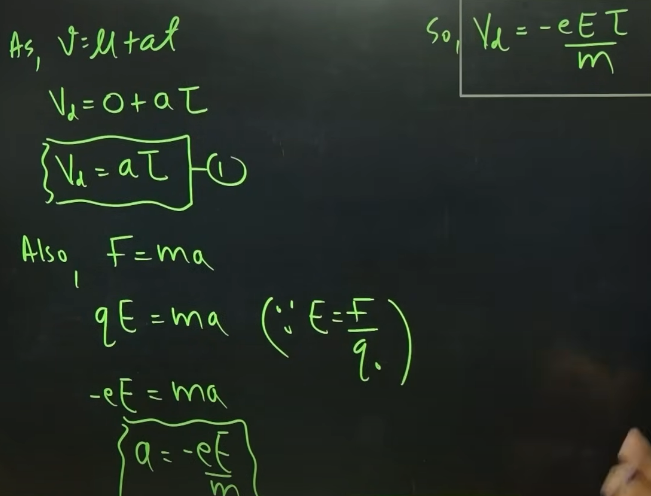 As, v=u+at
V_d = 0 + aτ
V_d = aτ —①
Also, F = ma
qE = ma (∵ E = F/q₀)
-eE = ma
a = -eE/m
So, V_d = -eEτ/m